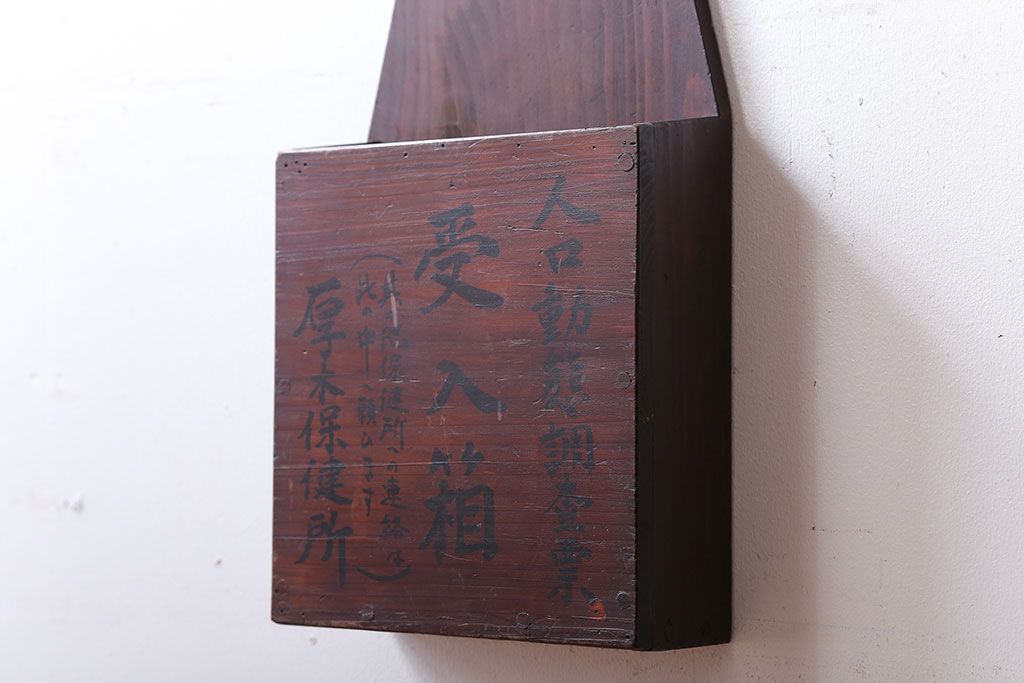 人口動態調査票
受入箱
(其他保健所への連絡は
此の中へ願ひます)
厚木保健所